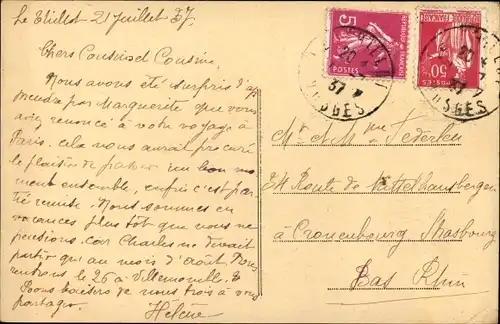 Le Thillot 21 Juillet 37
Chers Cousin et Cousine.
Nous avons été surpris d'ap
prendre par Marguerite que vous
aviez renoncé à votre voyage à
Paris. cela nous aurait procuré
le plaisir de passer un bon mo
ment ensemble, enfin c'est par
tie remise. Nous sommes en
vacances plus tôt que nous ne
pensions. Car Charles ne devait
partir qu'au mois d'août. Nous
rentrons le 26 à Villemomble.
Bons baisers de nous trois à vous
partager.
Hélène
5
POSTES
REPUBLIQUE FRANÇAISE
50c
POSTES
VOSGES
37
VOSGES
Mr & Mme Federlen
Route de Mittelhausbergen
à Cronenbourg Strasbourg
Bas Rhin